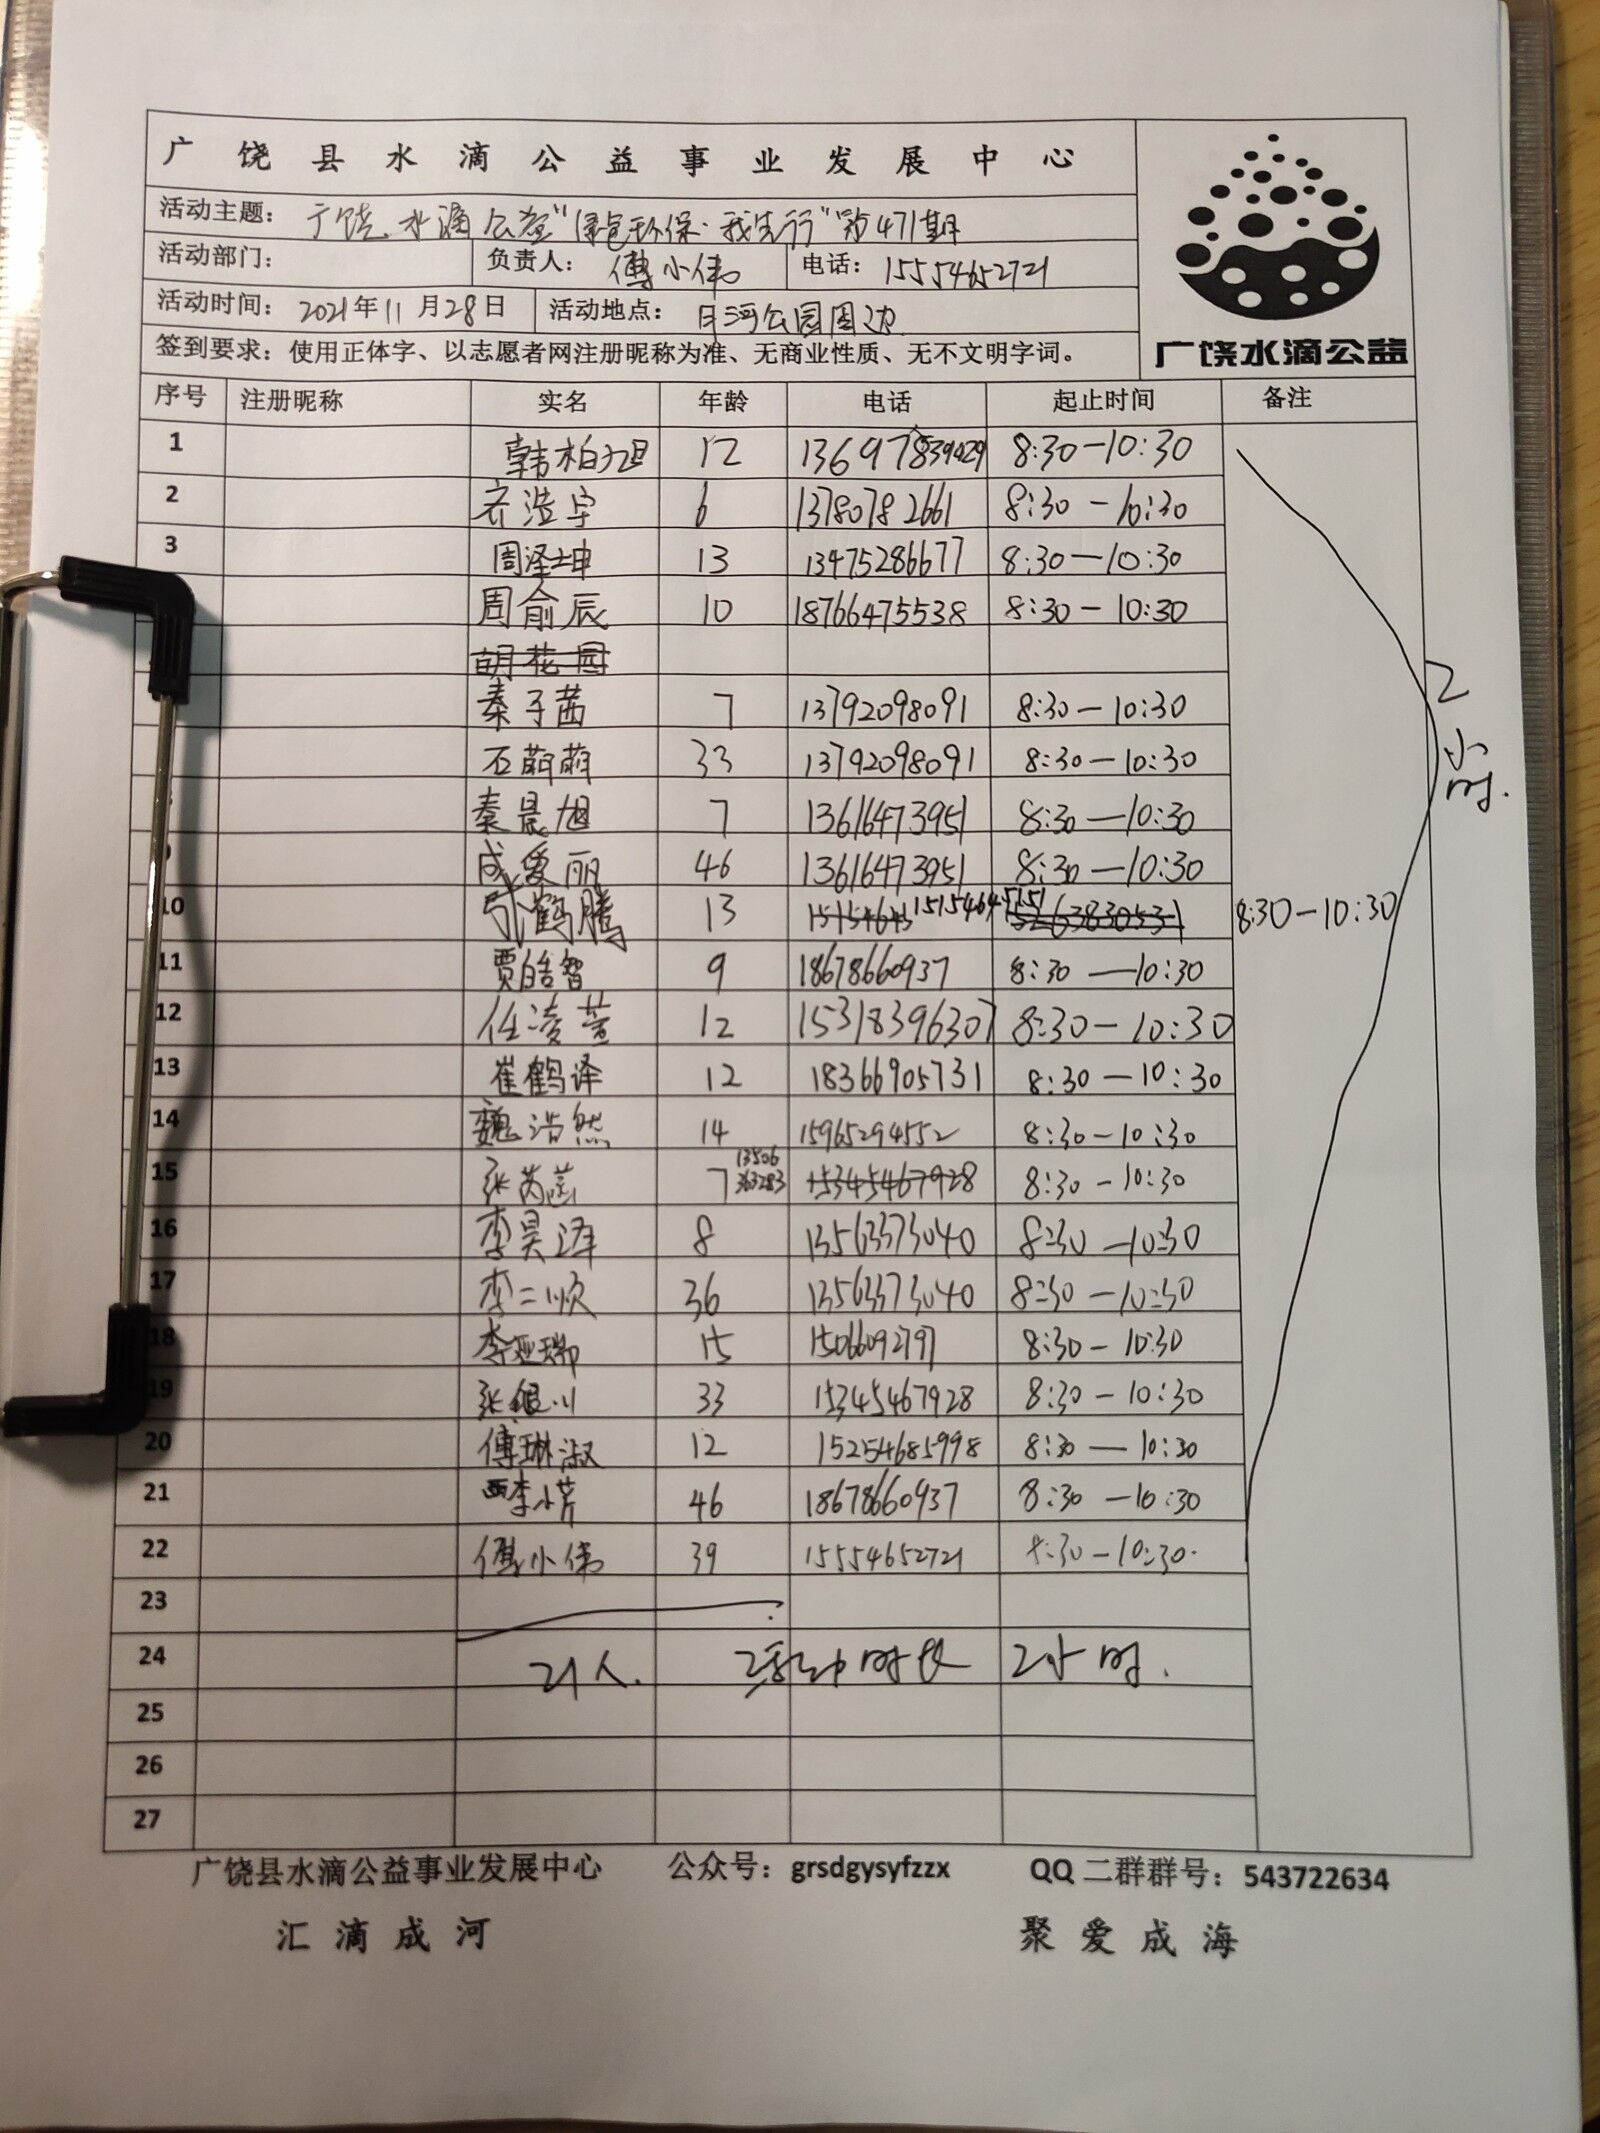 广饶县水滴公益事业发展中心
活动主题：广饶水滴公益"绿色环保·我先行"第471期
活动部门： 负责人：傅小伟 电话：15554652721
活动时间：2021年11月28日 活动地点：月河公园周边
签到要求：使用正体字、以志愿者网注册昵称为准、无商业性质、无不文明字词。
广饶水滴公益
序号 注册昵称 实名 年龄 电话 起止时间 备注
1 韩柏旭 12 8:30-10:30
2 齐浩宇 6 13780782661 8:30-10:30
3 周泽坤 13 13475286677 8:30-10:30
周俞辰 10 18766475538 8:30-10:30
胡花园
秦子茜 7 13792098091 8:30-10:30
石萌萌 33 13792098091 8:30-10:30
2小时.
秦晨旭 7 13616473951 8:30-10:30
成爱丽 46 13616473951 8:30-10:30
10 鹤腾 13 15154645151 15263830531 8:30-10:30
11 贾皓智 9 18678660937 8:30-10:30
12 任凌萱 12 15318396307 8:30-10:30
13 崔鹤译 12 18366905731 8:30-10:30
14 魏浩然 14 15965294552 8:30-10:30
15 张芮菡 7 13506363283 15345467928 8:30-10:30
16 李昊泽 8 13563373040 8:30-10:30
17 李二顺 36 13563373040 8:30-10:30
18 李亚瑞 15 15066092797 8:30-10:30
19 张银川 33 15345467928 8:30-10:30
20 傅琳淑 12 15254685998 8:30-10:30
21 李小芳 46 18678660937 8:30-10:30
22 傅小伟 39 15554652721 8:30-10:30.
23
24 21人. 活动时长 2小时.
25
26
27
广饶县水滴公益事业发展中心 公众号：grsdgysyfzzx QQ二群群号：543722634
汇滴成河 聚爱成海